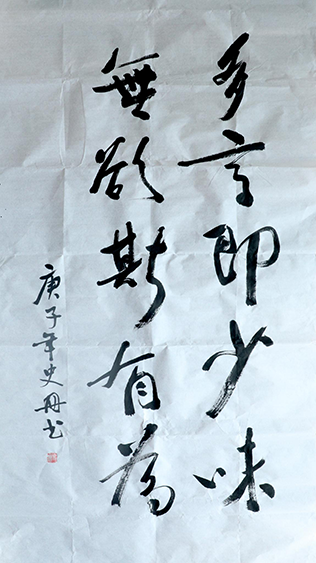 多言即少味
無欲斯有為
庚子年史丹书